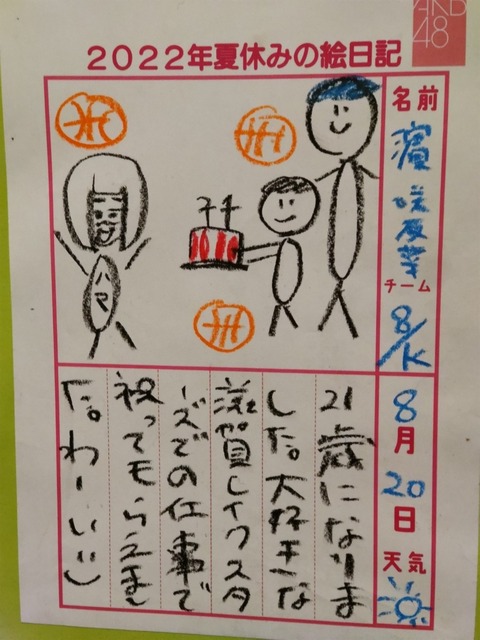 AKB
48
2022年夏休みの絵日記
名前
濵 咲友菜
チーム
8/K
8月
20日
天気
24
ハマ
21歳になりま
した。大好きな
滋賀レイクスタ
ーズでの仕事で
祝ってもらえまし
た。わーいい:)